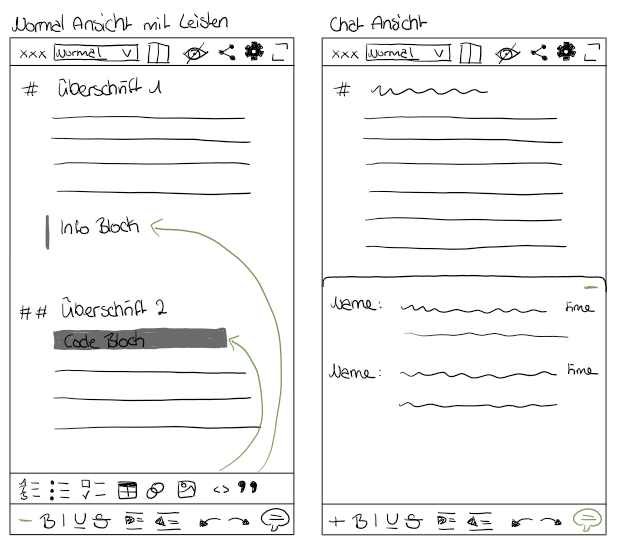 Normal Ansicht mit Leisten
xxx Normal
# Überschrift 1
Info Block
## Überschrift 2
Code Block
<> "
B I U S
Chat Ansicht
xxx Normal
#
Name: time
Name: time
+ B I U S